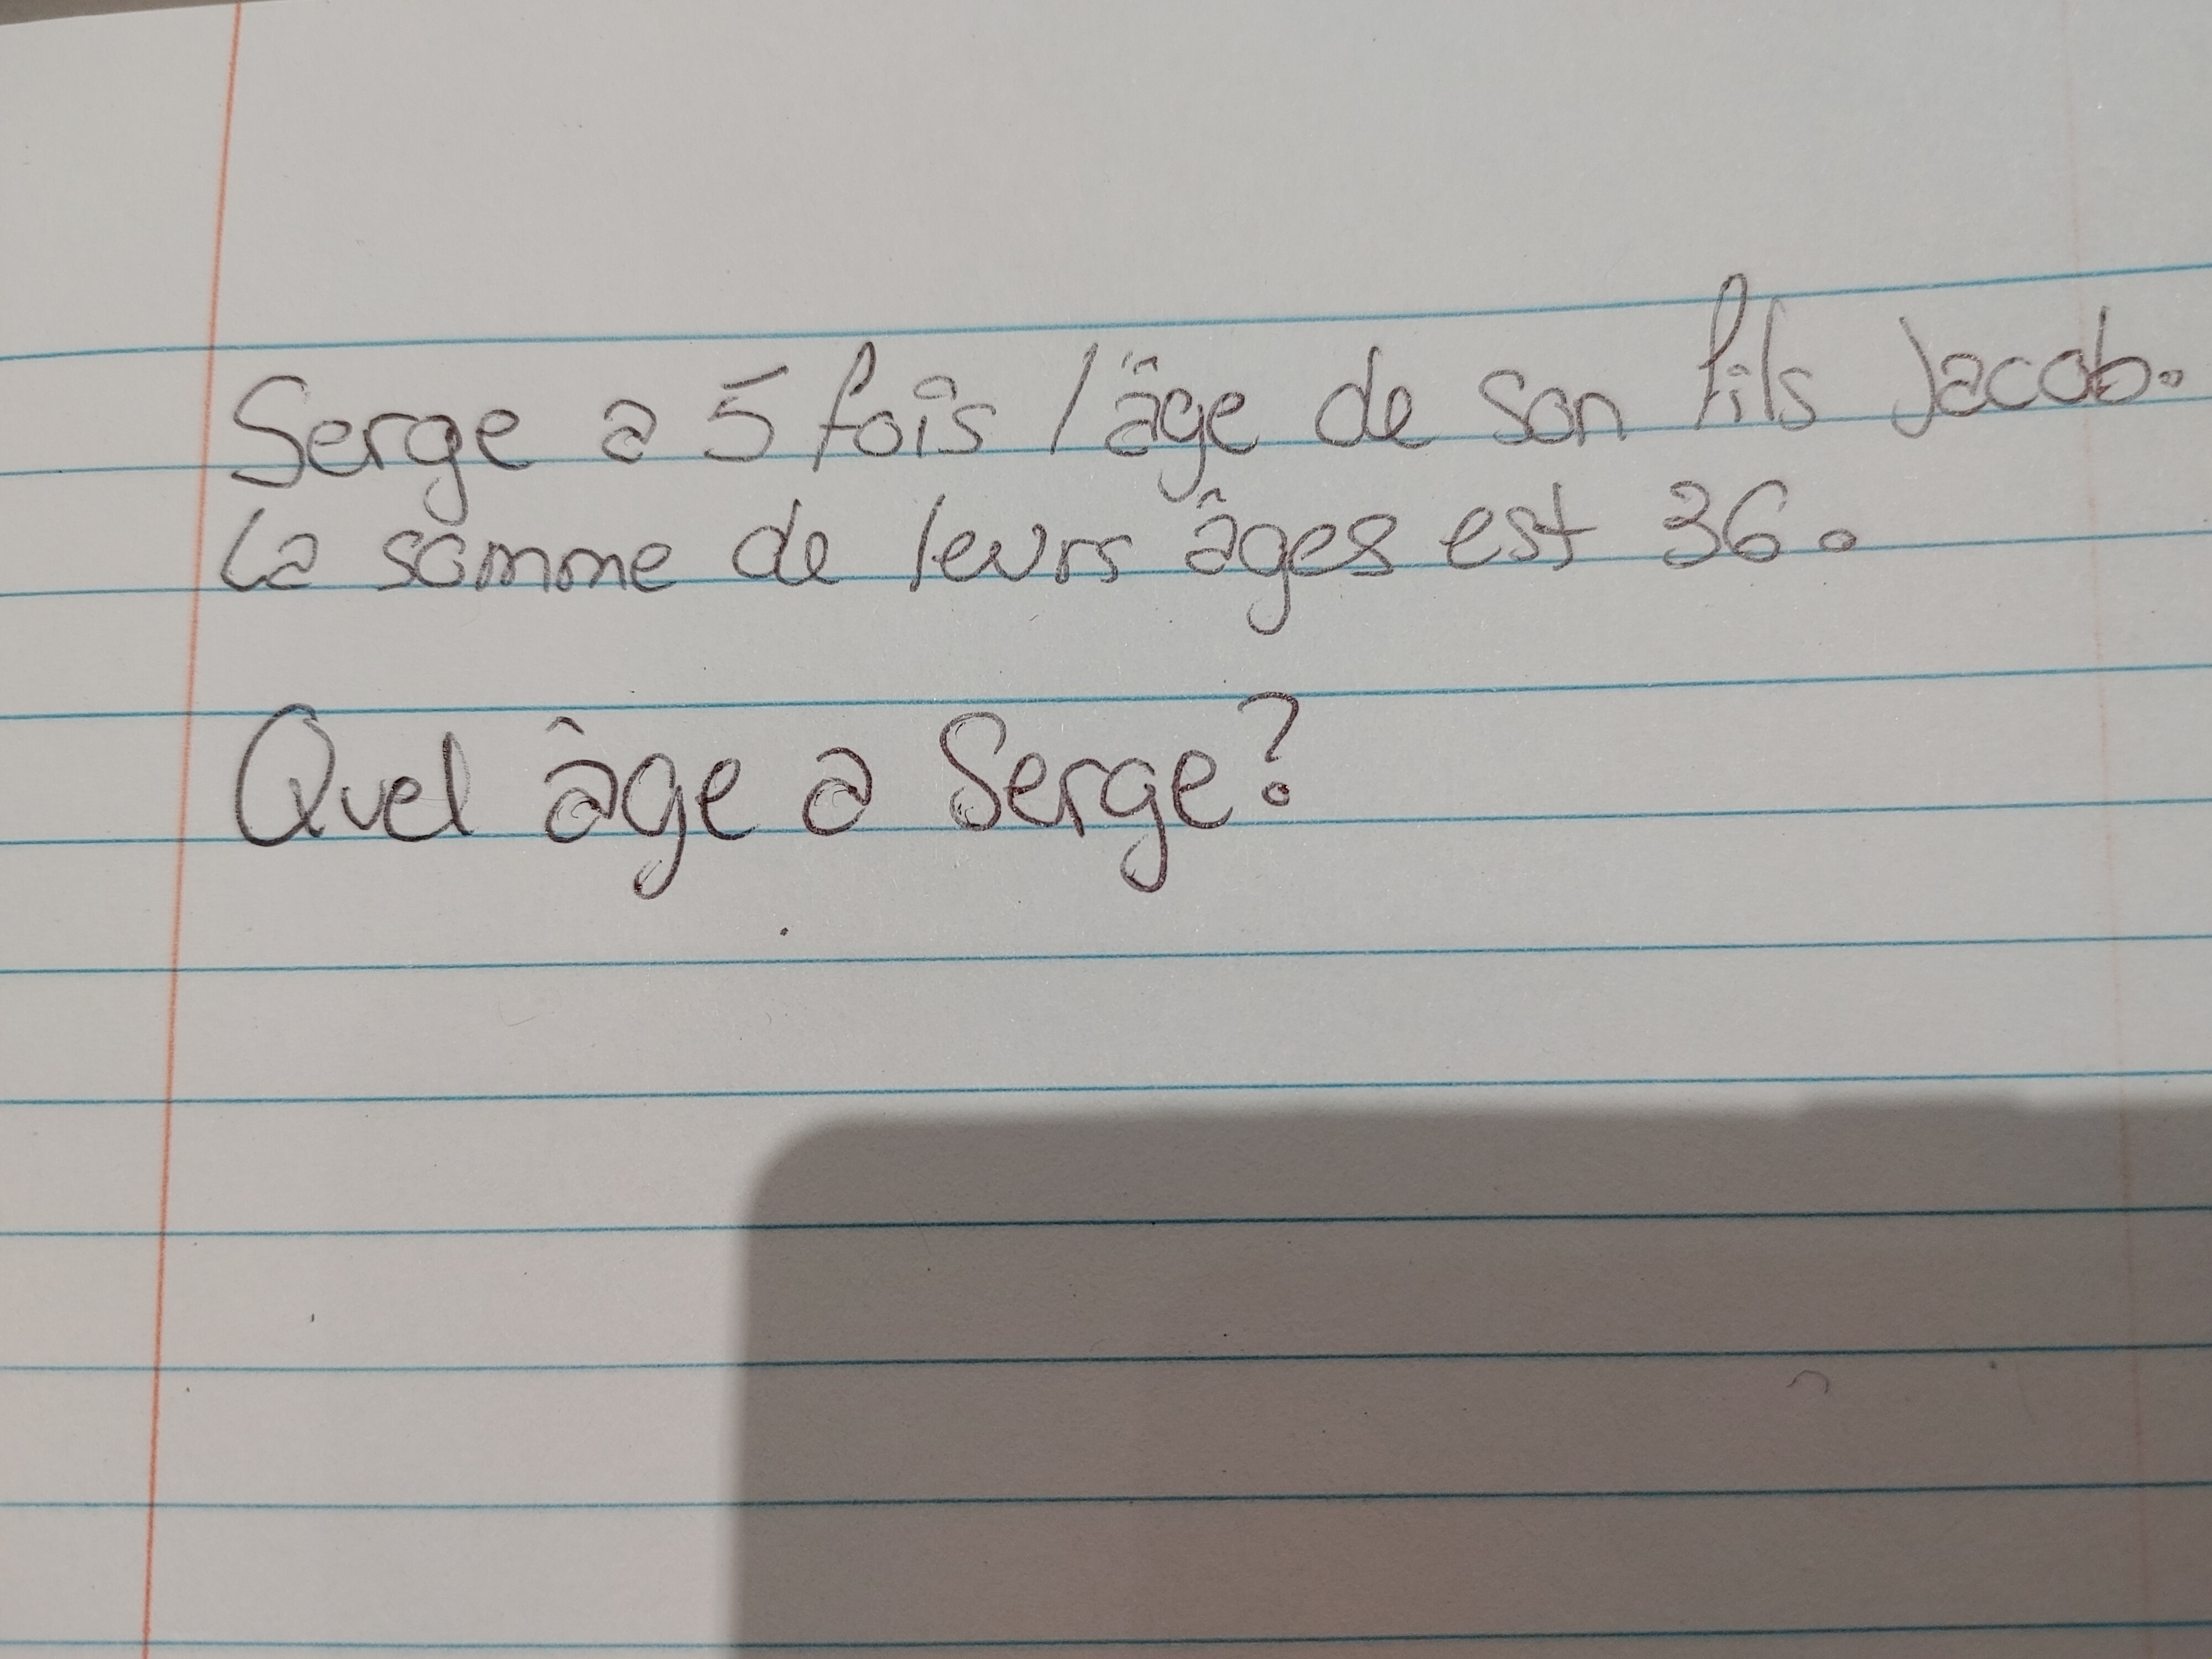 Serge a 5 fois l'âge de son fils Jacob.
La somme de leurs âges est 36.
Quel âge a Serge?